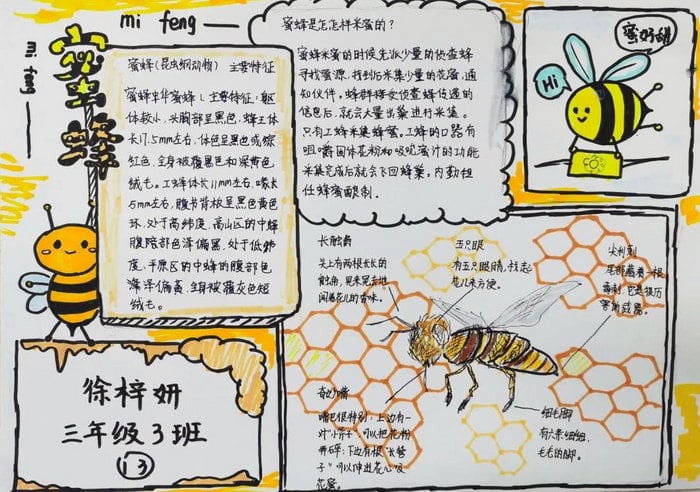 mi feng
mi feng
蜜蜂
蜜蜂(昆虫纲动物) 主要特征
蜜蜂中华蜜蜂1.主要特征:躯
体较小,头胸部呈黑色,蜂王体
长17.5mm左右,体色呈黑色或棕
红色,全身被覆黑色和深黄色
绒毛。工蜂体长11mm左右,喙长
5mm左右,腹节背板呈黑色黄色
环,处于高纬度、高山区的中蜂
腹部色泽偏黑,处于低纬
度、平原区的中蜂的腹部色
泽偏黄,全身被覆灰色短
绒毛。
蜜蜂是怎怎样采蜜的?
蜜蜂采蜜的时候先派少量的侦查蜂
寻找蜜源,找到后采集少量的花蜜,通
知伙伴,蜂群接受侦查蜂传递的
信息后,就会大量出巢进行采集。
只有工蜂采集蜂蜜。工蜂的口器有
咀嚼固体花粉和吸吮蜜汁的功能
采集完成后就会飞回蜂巢,内勤担
任蜂蜜酿制.
蜜好甜
Hi
长触角
头上有两根长长的
触角,用来
闻着花儿的香味。
五只眼
有五只眼睛,找起
花儿来方便。
尖利刺
尾部藏着一根
毒刺,它是很厉
害的武器。
奇妙嘴
嘴巴很特别,上边有一
对“小筛子”可以把花粉
弄碎;下边有根“长管
子”可以伸进花心吸
花蜜。
细毛脚
有六条细细、
毛毛的脚。
徐梓妍
三年级3班
13